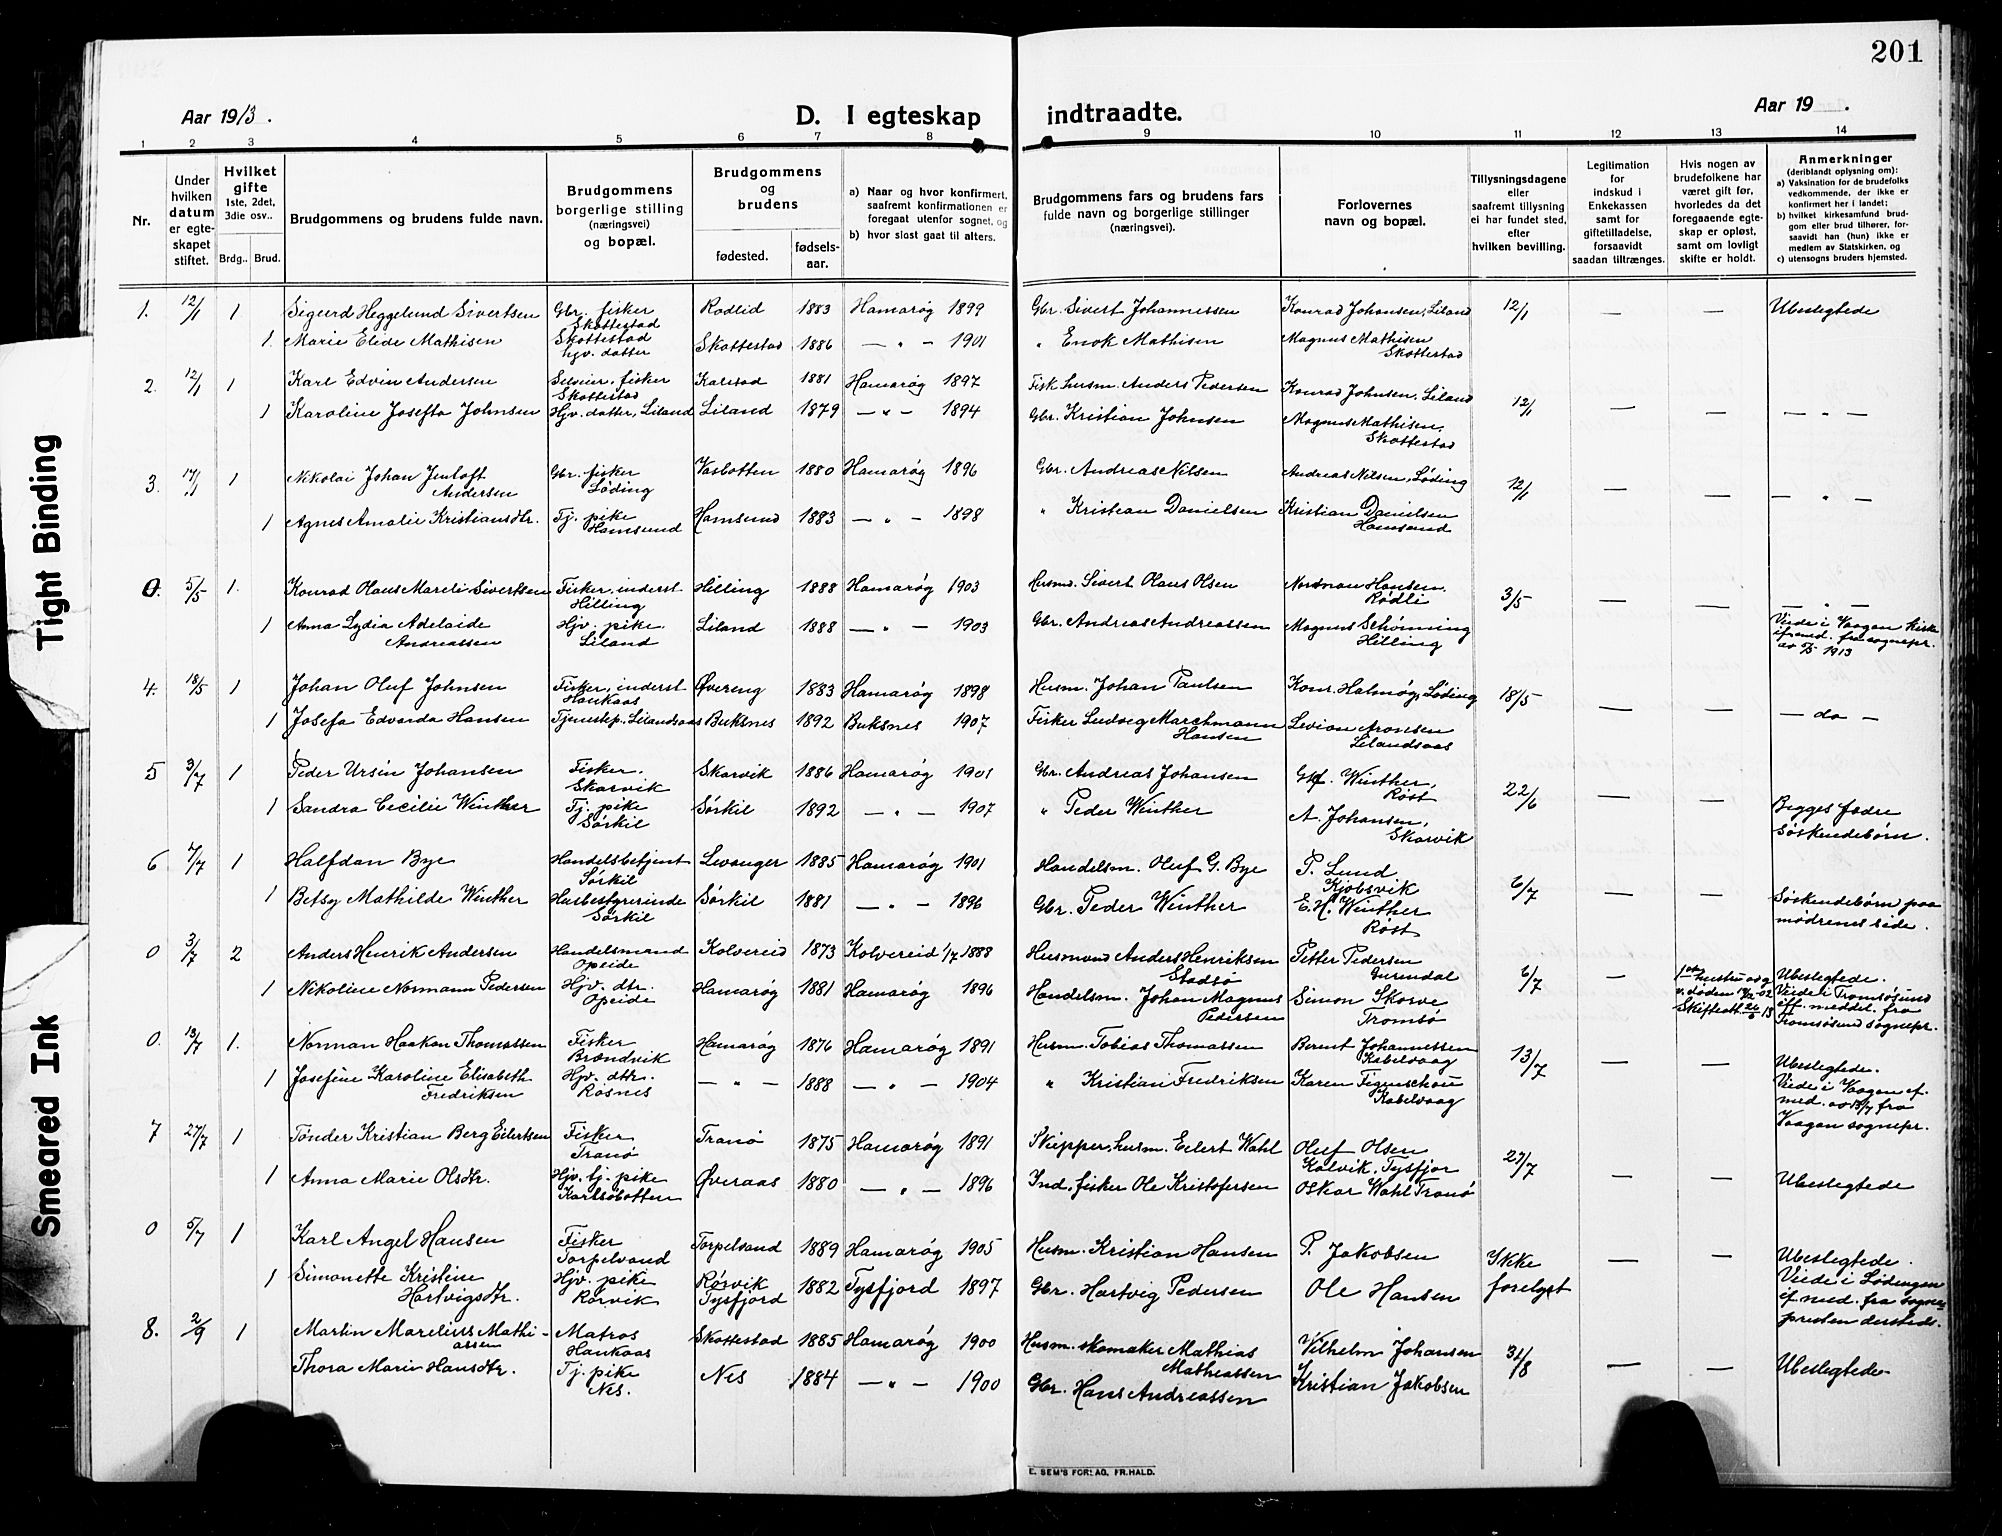 201
Aar 1913.
D. I egteskap indtraadte.
Aar 19 .
1 2 3 4 5 6 7 8 9 10 11 12 13 14
Nr.
Under hvilken datum er egteskapet stiftet.
Hvilket gifte 1ste, 2det, 3die osv..
Brdg.. Brud.
Brudgommens og brudens fulde navn.
Brudgommens borgerlige stilling (næringsvei) og bopæl.
Brudgommens og brudens
fødested. fødsels-aar.
a) Naar og hvor konfirmert, saafremt konfirmationen er foregaat utenfor sognet, og
b) hvor sidst gaat til alters.
Brudgommens fars og brudens fars fulde navn og borgerlige stillinger (næringsvei).
Forlovernes navn og bopæl.
Tillysningsdagene eller saafremt tillysning ei har fundet sted, efter hvilken bevilling.
Legitimation for indskud i Enkekassen samt for giftetilladelse, forsaavidt saadan tiltrænges.
Hvis nogen av brudefolkene har været gift før, hvorledes da det foregaaende egteskap er opløst, samt om lovligt skifte er holdt.
Anmerkninger (deriblandt oplysning om):
a) Vaksination for de brudefolks vedkommende, der ikke er konfirmert her i landet;
b) hvilket kirkesamfund brudgom eller brud tilhører, forsaavidt han (hun) ikke er medlem av Statskirken, og
c) utensogns bruders hjemsted.
1. 12/1 1 Sigurd Heggelund Sivertsen Gbr. fisker Skottestad Rodlid 1883 Hamarøg 1899 Gbr. Sivert Johannessen Konrad Johnsen, Liland 12/1 — — Ubeslegtede
1 Marie Elide Mathisen Skottestad hjv. datter Skottestad 1886 — " — 1901 " Enok Mathisen Magnus Mathisen Skottestad
2. 12/1 1 Karl Edvin Andersen Selveier, fisker Skottestad Kalstad 1881 Hamarøg 1897 Fisk. husm. Anders Pedersen Konrad Johnsen, Liland 12/1 — — — " —
1 Karoline Josefta Johnsen Hjv. datter, Liland Liland 1879 — " — 1894 Gbr. Kristian Johnsen Magnus Mathisen, Skottestad
3. 17/1 1 Nikolai Johan Jenloft Andersen Gbr. fisker Løding Vasbotten 1880 Hamarøg 1896 Gbr. Andreas Nilsen Andreas Nilsen, Løding 12/1 — — — " —
1 Agnes Amalie Kristiansdtr. Tj. pike Hamsund Hamsund 1883 — " — 1898 " Kristian Danielsen Kristian Danielsen Hamsund
0. 5/5 1. Konrad Olaus Mareli Sivertsen Fisker, inderst Hilling Hilling 1888 Hamarøg 1903 Husm. Sivert Olaus Olsen Nordman Hansen, Rødli 3/5 — — — " —
1 Anna Lydia Adelaide Andreassen Hjv. pike Liland Liland 1888 — " — 1903 Gbr. Andreas Andreassen Magnus Schønning Hilling Viede i Vaagan kirke if. med. fra sognepr. av 1913
4. 18/5 1 Johan Oluf Johnsen Fisker, inderst Haukaas Øvereng 1883 Hamarøg 1898 Husm. Johan Paulsen Konr. Halmøg, Løding 18/5 — — — do —
1 Josefa Edvarda Hansen Tjenestep. Lilandsaas Buksnes 1892 Buksnes 1907 Fisker Ludvig Marchmann Hansen Levion Aronsen Lilandsaas
5 3/7 1 Peder Ursin Johansen Fisker. Skarvik Skarvik 1886 Hamarøg 1901 Gbr. Andreas Johansen Winther, Røst 22/6 — —
1 Sandra Cecilie Winther Tj. pike Sørkil Sørkil 1892 — " — 1907 " Peder Winther A. Johansen, Skarvik Begges fædre søskendebørn.
6 7/7 1 Halfdan Bye Handelsbetjent Sørkil Levanger 1885 Hamarøg 1901 Handelsm. Oluf G. Bye P. Lund Kjøbsvik 6/7 — —
1 Betsy Mathilde Winther Husbestyrerinde Sørkil Sørkil 1881 — " — 1896 Gbr. Peder Winther E. H. Winther Røst Søskendebørn paa mødrenes side.
0 3/7 2 Anders Henrik Andersen Handelsmand Opeide Kolvereid 1873 Kolvereid 1/7 1888 Husmand Anders Henriksen Petter Pedersen 6/7 — Ubeslegtede.
1 Nikoline Normann Pedersen Hjv. dtr. Opeide Hamarøg 1881 Hamarøg 1896 Handelsm. Johan Magnus Pedersen Simon Skorve Tromsø Viede i Tromsøsund eff. meddel. fra Tromsøsund sognepr.
0. 13/7 1. Norman Haakon Thomassen Fisker Brændvik Hamarøg 1876 Hamarøg 1891 Husm. Tobias Thomassen Bernt Johannessen Kabelvaag 13/7 — — Ubeslegtede.
1 Josefine Karoline Elisabeth Fredriksen Hjv. dtr. Røsnes — " — 1888 — " — 1904 " Kristian Fredriksen Karen Figenschou Kabelvaag Viede i Vaagan ef. med. av 13/7 fra Vaagan sognepr.
7 27/7 1 Tønder Kristian Berg Eilertsen Fisker Tranø Tranø 1875 Hamarøg 1891 Skipper, husm. Eilert Wahl Oluf Olsen Kalvik, Tysfjor 27/7 — —
1 Anna Marie Olsdtr. Hjv. tj. pike Karlsøbotten Øveraas 1880 — " — 1896 Ind. fisker Ole Kristofersen Oskar Wahl Tranø Ubeslegtede
0 5/7 1 Karl Angel Hansen Fisker Torpelvand Torpelvand 1889 Hamarøg 1905 Husm. Kristian Hansen P. Jakobsen Ikke forelyst — — Ubeslegtede.
1 Simonette Kristine Hartvigsdtr. Hjv. pike Rørvik Rørvik Tysfjord 1882 Tysfjord 1897 Gbr. Hartvig Pedersen Ole Hansen Viede i Lødingen ef. med. fra sognepresten dersteds.
8. 2/9 1 Martin Marelius Mathiassen Matros Haukaas Skottestad 1885 Hamarøg 1900 Husm. skomaker Mathias Matheassen Vilhelm Johansen 31/8 — — Ubeslegtede
Thora Marie Hansdtr. Tj. pike Nes. Nes 1884 — " — 1900 Gbr. Hans Andreassen Kristian Jakobsen
E. SEM'S FORLAG, FR.HALD.
Tight Binding
Smeared Ink